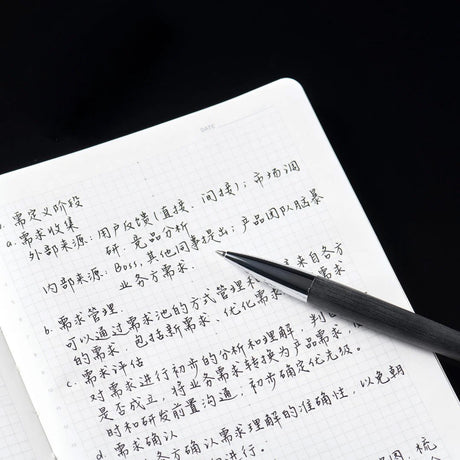 DATE
需定义阶段
a. 需求收集
外部来源：用户反馈(直接、间接)；市场调
研、竞品分析
内部来源：Boss、其他同事提出；产品团队脑暴
业务方需求
b. 需求管理
可以通过需求池的方式管理 来自各方
的需求，包括新需求、优化需求 需求
c. 需求评估
对需求进行初步的分析和理解，判
是否成立，将业务需求转换为产品需求，
时和研发前置沟通，初步确定优先级。
d. 需求确认
各方确认需求理解的准确性，以免朝
进行。
图 梳